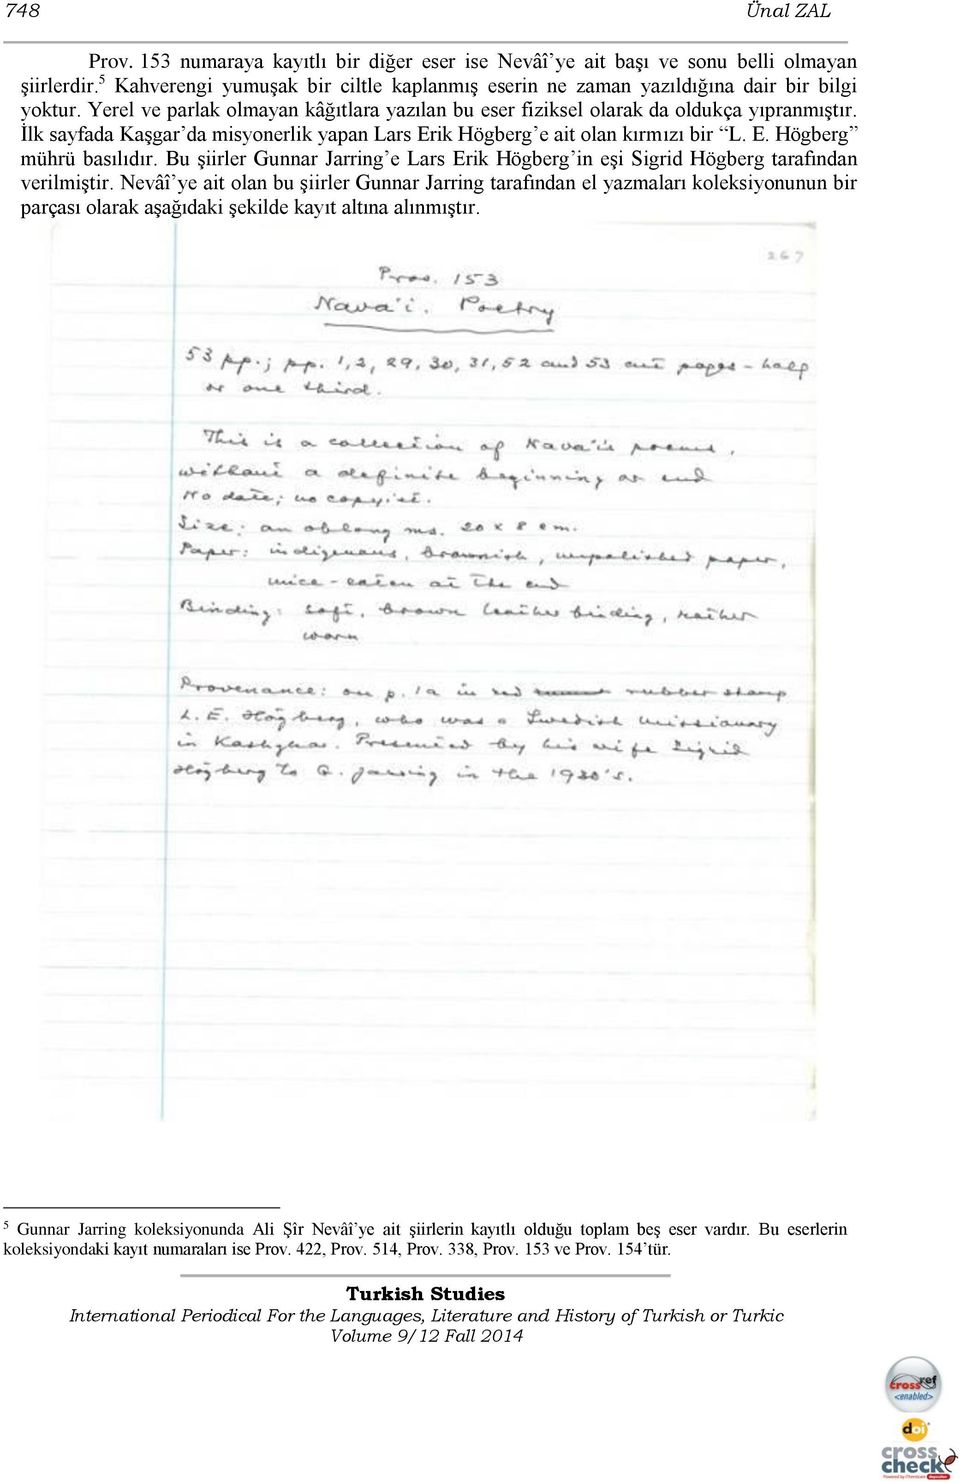 748 Ünal ZAL
Prov. 153 numaraya kayıtlı bir diğer eser ise Nevâî’ye ait başı ve sonu belli olmayan
şiirlerdir.5 Kahverengi yumuşak bir ciltle kaplanmış eserin ne zaman yazıldığına dair bir bilgi
yoktur. Yerel ve parlak olmayan kâğıtlara yazılan bu eser fiziksel olarak da oldukça yıpranmıştır.
İlk sayfada Kaşgar’da misyonerlik yapan Lars Erik Högberg’e ait olan kırmızı bir “L. E. Högberg”
mührü basılıdır. Bu şiirler Gunnar Jarring’e Lars Erik Högberg’in eşi Sigrid Högberg tarafından
verilmiştir. Nevâî’ye ait olan bu şiirler Gunnar Jarring tarafından el yazmaları koleksiyonunun bir
parçası olarak aşağıdaki şekilde kayıt altına alınmıştır.
267
Prov. 153
Nava'i. Poetry
53 pp.; pp. 1, 2, 29, 30, 31, 52 and 53 cut pages - half
or one third.
This is a collection of Nava'i's poems,
without a definite beginning or end
No date; no copyist.
Size: an oblong ms. 20 x 8 cm.
Paper: indigenous, brownish, unpolished paper,
mice-eaten at the end
Binding: soft, brown leather binding, rather
worn
Provenance: on p. 1a in red rubber stamp
L. E. Högberg, who was a Swedish missionary
in Kashghar. Presented by his wife Sigrid
Högberg to G. Jarring in the 1930's.
5 Gunnar Jarring koleksiyonunda Ali Şîr Nevâî’ye ait şiirlerin kayıtlı olduğu toplam beş eser vardır. Bu eserlerin
koleksiyondaki kayıt numaraları ise Prov. 422, Prov. 514, Prov. 338, Prov. 153 ve Prov. 154’tür.
Turkish Studies
International Periodical For the Languages, Literature and History of Turkish or Turkic
Volume 9/12 Fall 2014
cross ref
<enabled>
doi
cross
check